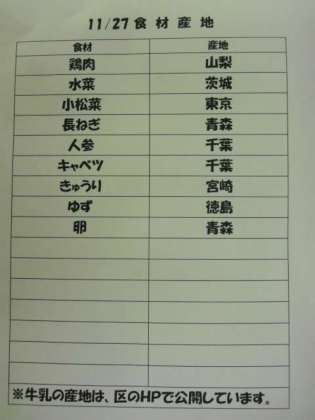 11/27食材産地
食材 産地
鶏肉 山梨
水菜 茨城
小松菜 東京
長ねぎ 青森
人参 千葉
キャベツ 千葉
きゅうり 宮崎
ゆず 徳島
卵 青森
※牛乳の産地は、区のHPで公開しています。